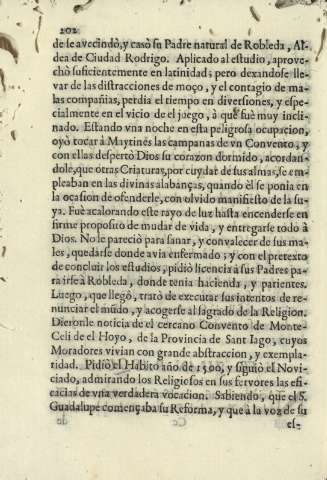 202
de se avecindò, y casò su Padre natural de Robleda, Al-
dea de Ciudad Rodrigo. Aplicado al estudio, aprove-
chò suficientemente en latinidad; pero dexandose lle-
var de las distracciones de moço, y el contagio de ma-
las compañias, perdia el tiempo en diversiones, y espe-
cialmente en el vicio de el juego, à que fuè muy incli-
nado. Estando vna noche en esta peligrosa ocupacion,
oyò tocar à Maytines las campanas de vn Convento, y
con ellas despertò Dios su corazon dormido, acordan-
dole, que otras Criaturas, por cuydar de sus almas, se em-
pleaban en las divinas alabanças, quando èl se ponia en
la ocasion de ofenderle, con olvido manifiesto de la su-
ya. Fuè acalorando este rayo de luz hasta encenderse en
firme proposito de mudar de vida, y entregarse todo à
Dios. No le pareciò para sanar, y convalecer de sus ma-
les, quedarse donde avia enfermado; y con el pretexto
de concluir los estudios, pidiò licencia à sus Padres pa-
ra irse à Robleda, donde tenia hacienda, y parientes.
Luego, que llegò, tratò de executar sus intentos de re-
nunciar el mũdo, y acogerse al sagrado de la Religion.
Dieronle noticia de el cercano Convento de Monte-
Celi de el Hoyo, de la Provincia de Sant Iago, cuyos
Moradores vivian con grande abstraccion, y exempla-
ridad. Pidiò el Habito año de 1500, y siguiò el Novi-
ciado, admirando los Religiosos en sus fervores las efi-
cacias de vna verdadera vocacion. Sabiendo, que el S.
Guadalupe començaba su Reforma, y que à la voz de su
es-